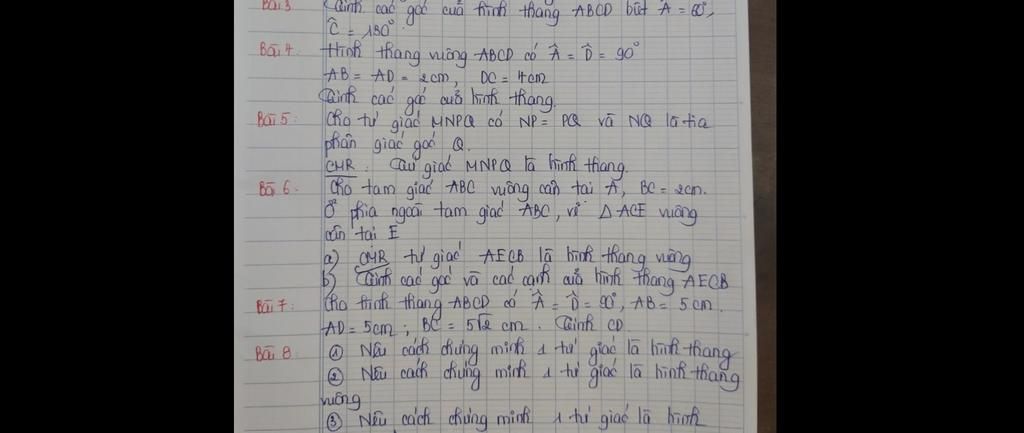 Bài 3 Tính các góc của hình thang ABCD biết Â = 60°,
Ĉ = 130°.
Bài 4. Hình thang vuông ABCD có Â = D̂ = 90°
AB = AD = 2cm, DC = 4cm
Tính các góc của hình thang.
Bài 5: Cho tứ giác MNPQ có NP = PQ và NQ là tia
phân giác góc Q.
CMR. Tứ giác MNPQ là hình thang.
Bài 6. Cho tam giác ABC vuông cân tại A, BC = 2cm.
Ở phía ngoài tam giác ABC, vẽ Δ ACE vuông
cân tại E
a) CMR tứ giác AECB là hình thang vuông
b) Tính các góc và các cạnh của hình thang AECB
Bài 7: Cho hình thang ABCD có Â = D̂ = 90°, AB = 5cm.
AD = 5cm; BC = 5√2 cm. Tính CD.
Bài 8 ① Nêu cách chứng minh 1 tứ giác là hình thang
② Nêu cách chứng minh 1 tứ giác là hình thang
vuông
③ Nêu cách chứng minh 1 tứ giác là hình